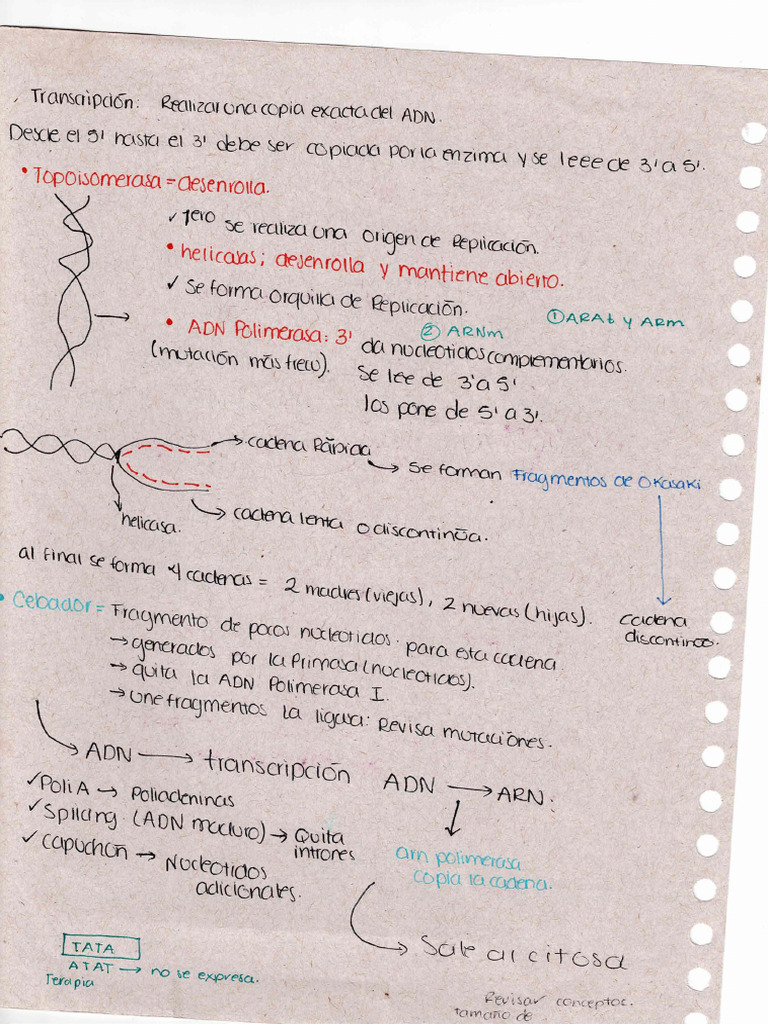 Transcripción: Realizar una copia exacta del ADN.
Desde el 5' hasta el 3' debe ser copiada por la enzima y se leee de 3' a 5'.
• Topoisomerasa = desenrolla.
✓ 1ero se realiza una origen de Replicación.
• helicasas; desenrolla y mantiene abierto.
✓ Se forma orquilla de Replicación.
① ARAt y ARm
② ARNm
• ADN Polimerasa: 3' da nucleotidos complementarios.
(mutación más frecu). Se lee de 3' a 5'
los pone de 5' a 3'.
→ cadena Rápida
→ Se forman Fragmentos de Okasaki
helicasa.
→ cadena lenta o discontinúa.
al final se forma 4 cadenas = 2 madres (viejas), 2 nuevas (hijas).
cadena
discontinoo.
• Cebador = Fragmento de pocos nucleotidos. para esta cadena
→ generados por la Primasa (nucleotidos).
→ quita la ADN Polimerasa I.
→ une fragmentos la ligasa: Revisa mutaciones.
→ ADN → transcripción
ADN → ARN.
✓ Poli A → Poliadeninas
✓ Splicing (ADN maduro) → Quita
intrones
✓ capuchón → Nucleotidos
adicionales.
arn polimerasa
copia la cadena.
→ Sale al citosa
TATA
ATAT → no se expresa.
Terapia
Revisar conceptos.
tamaño de